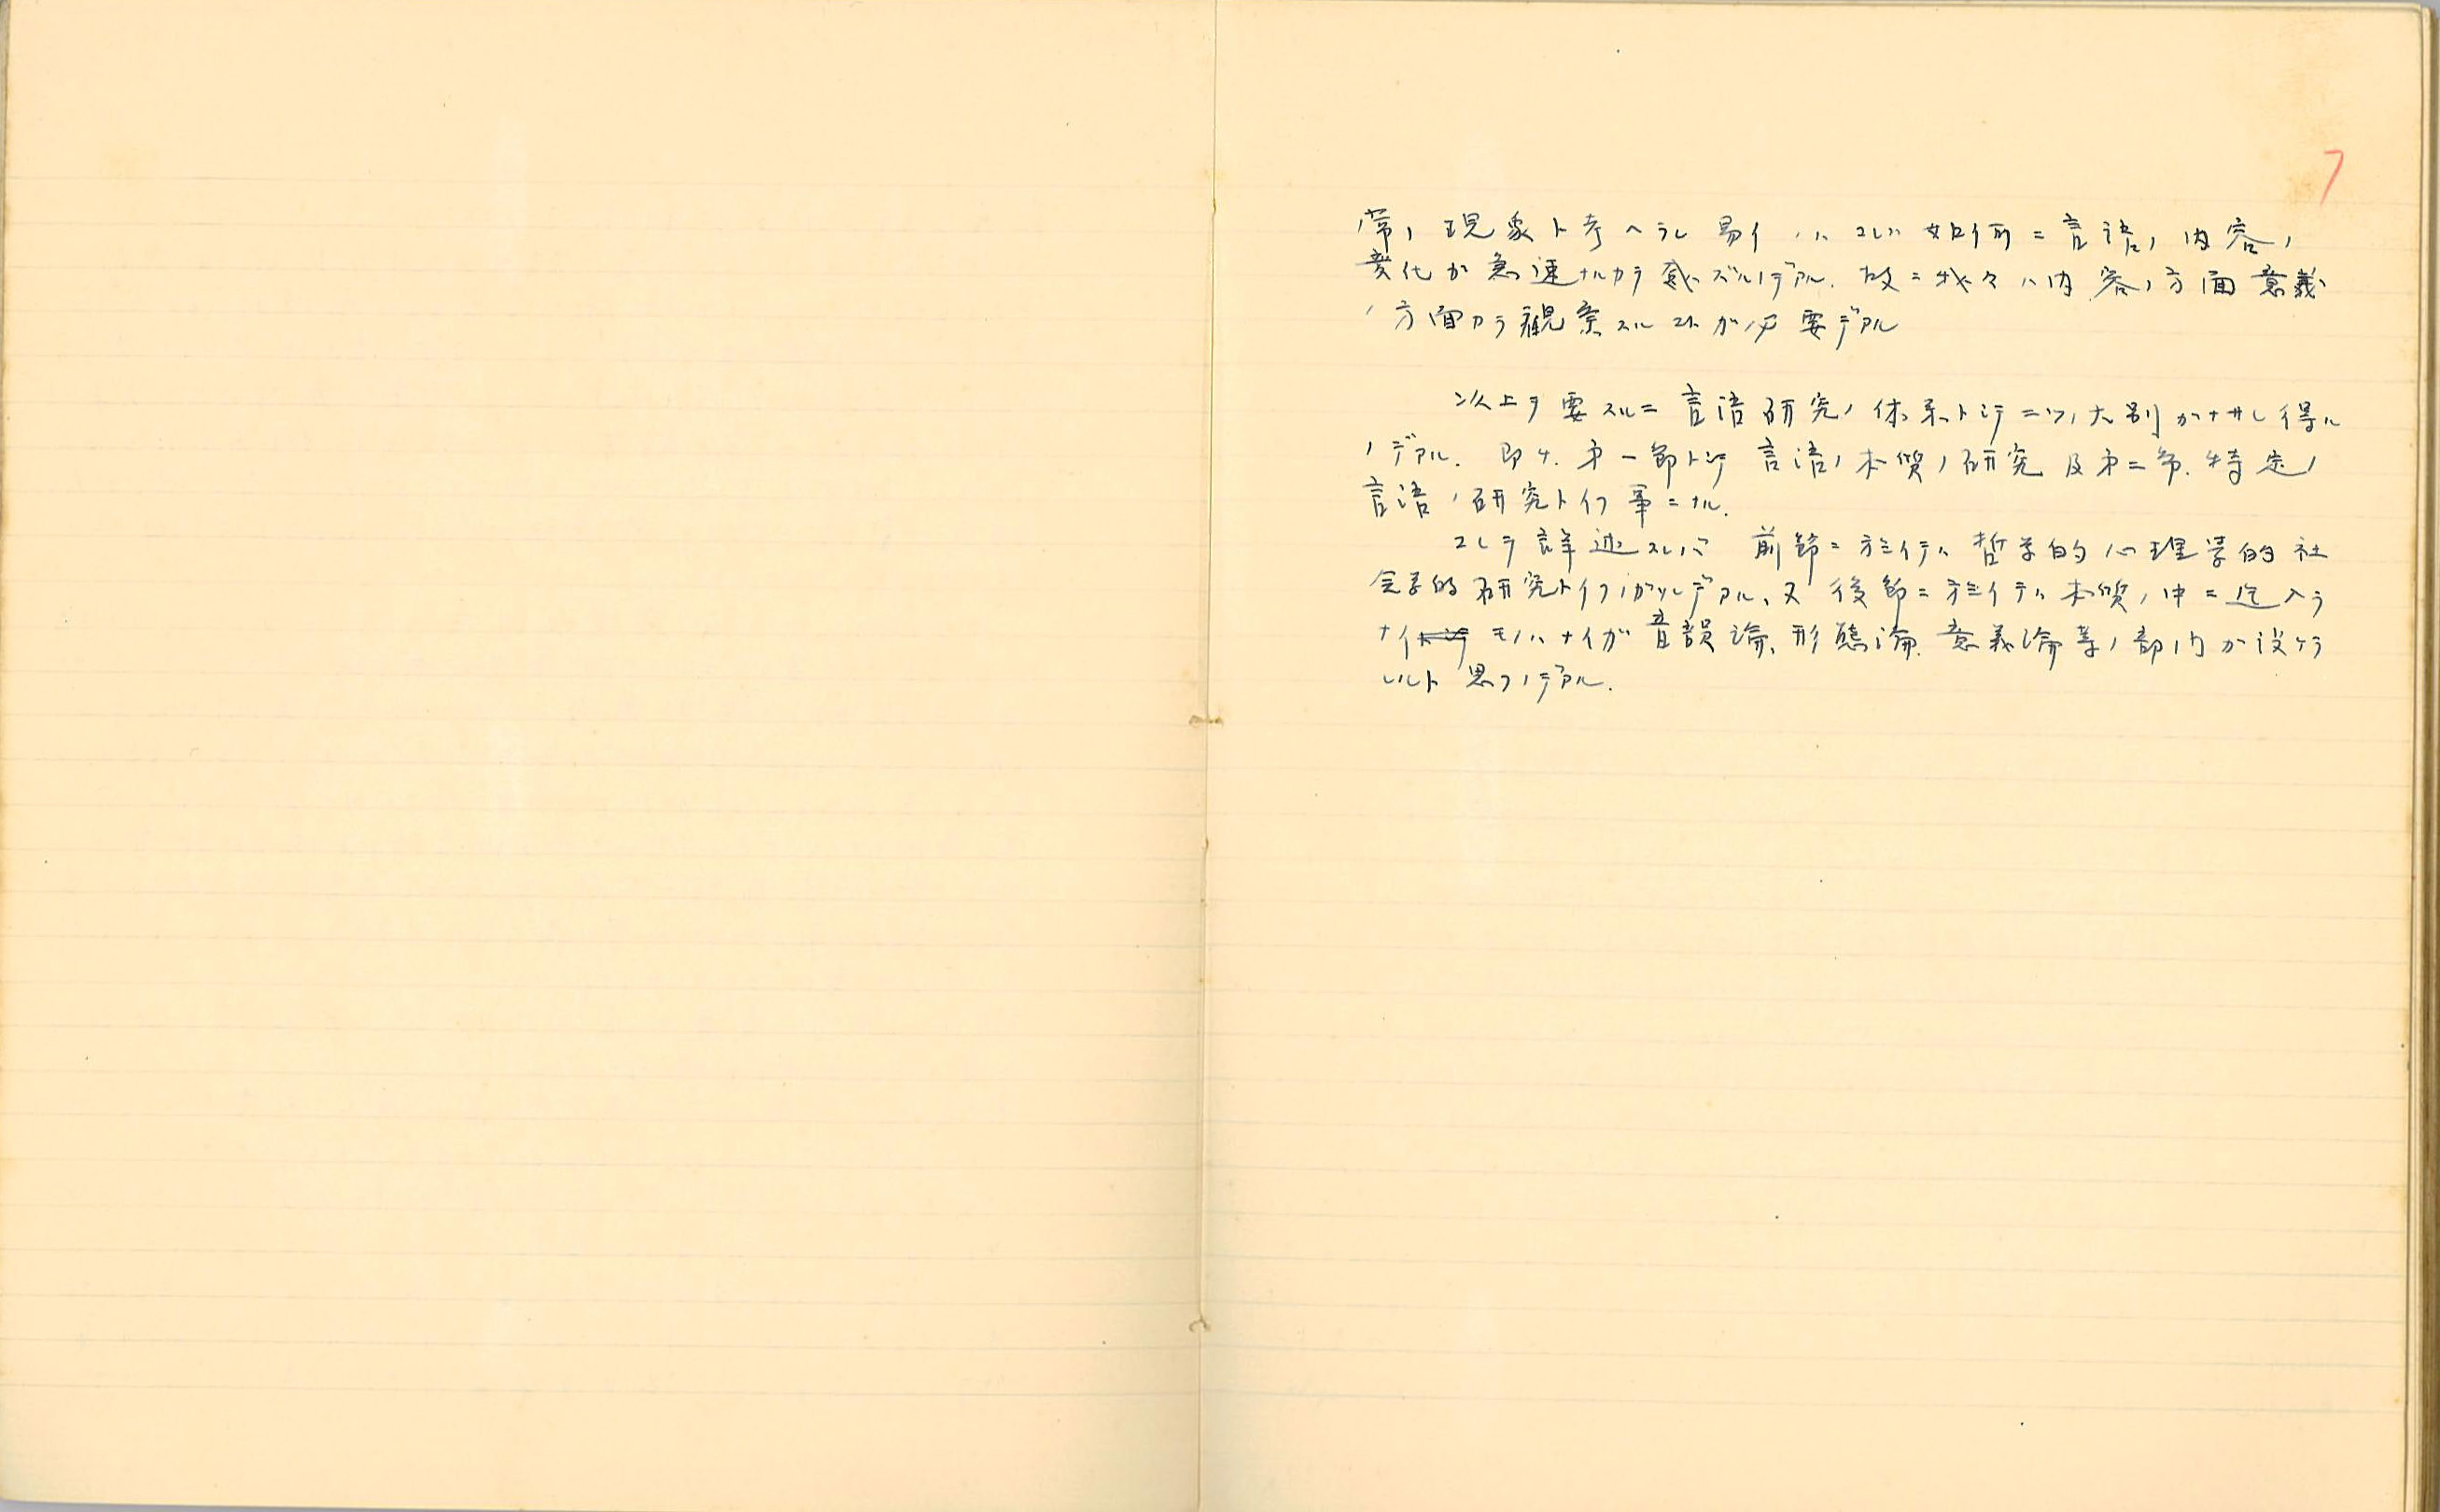 7
常ノ現象ト考ヘラレ易イノハコレハ如何ニ言語ノ内容ノ
変化が急速ナルカヲ感ズルノデアル. 故ニ我々ハ内容ノ方面意義
ノ方面カラ観察スルコトガ必要デアル
以上ヲ要スルニ言語研究ノ体系トシテ二ツノ大別ガナサレ得ル
ノデアル. 即チ. 第一節トシテ言語ノ本質ノ研究及第二節. 特定ノ
言語ノ研究トイフ事ニナル.
コレヲ詳述スレバ 前節ニ於イテハ哲学的心理学的社
会学的研究トイフノガソレデアル、又後節ニ於イテハ本質ノ中ニ迄入ラ
ナイトシテモノハナイガ音韻論、形態論. 意義論等ノ部門ガ設ケラ
レルト思フノデアル.